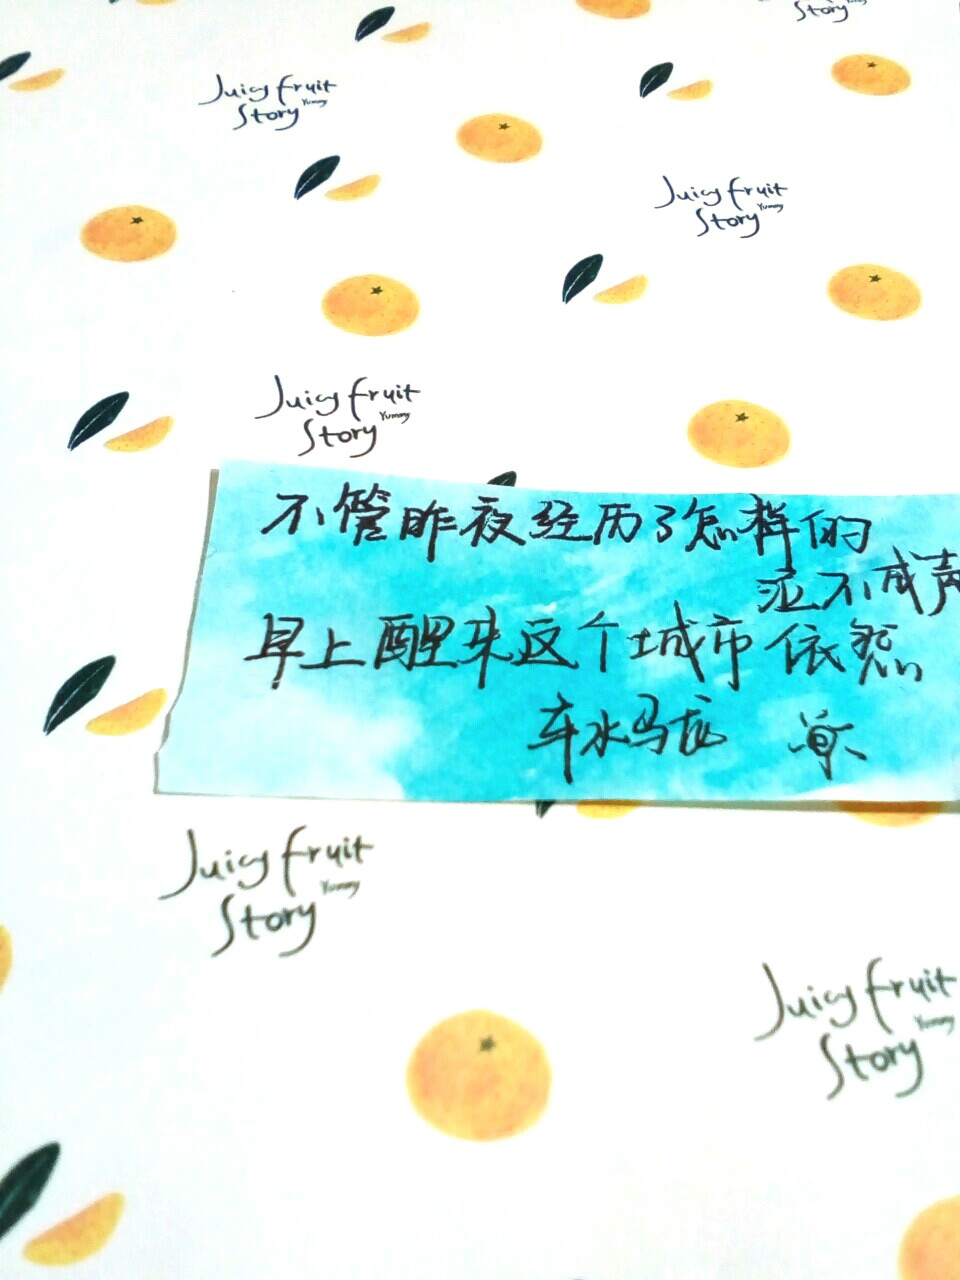 Story Yummy
Juicy Fruit
Story Yummy
Juicy Fruit
Story Yummy
Juicy Fruit
Story Yummy
不管昨夜经历了怎样的
泣不成声
早上醒来这个城市依然
车水马龙
Juicy Fruit
Story Yummy
Juicy Fruit
Story Yummy